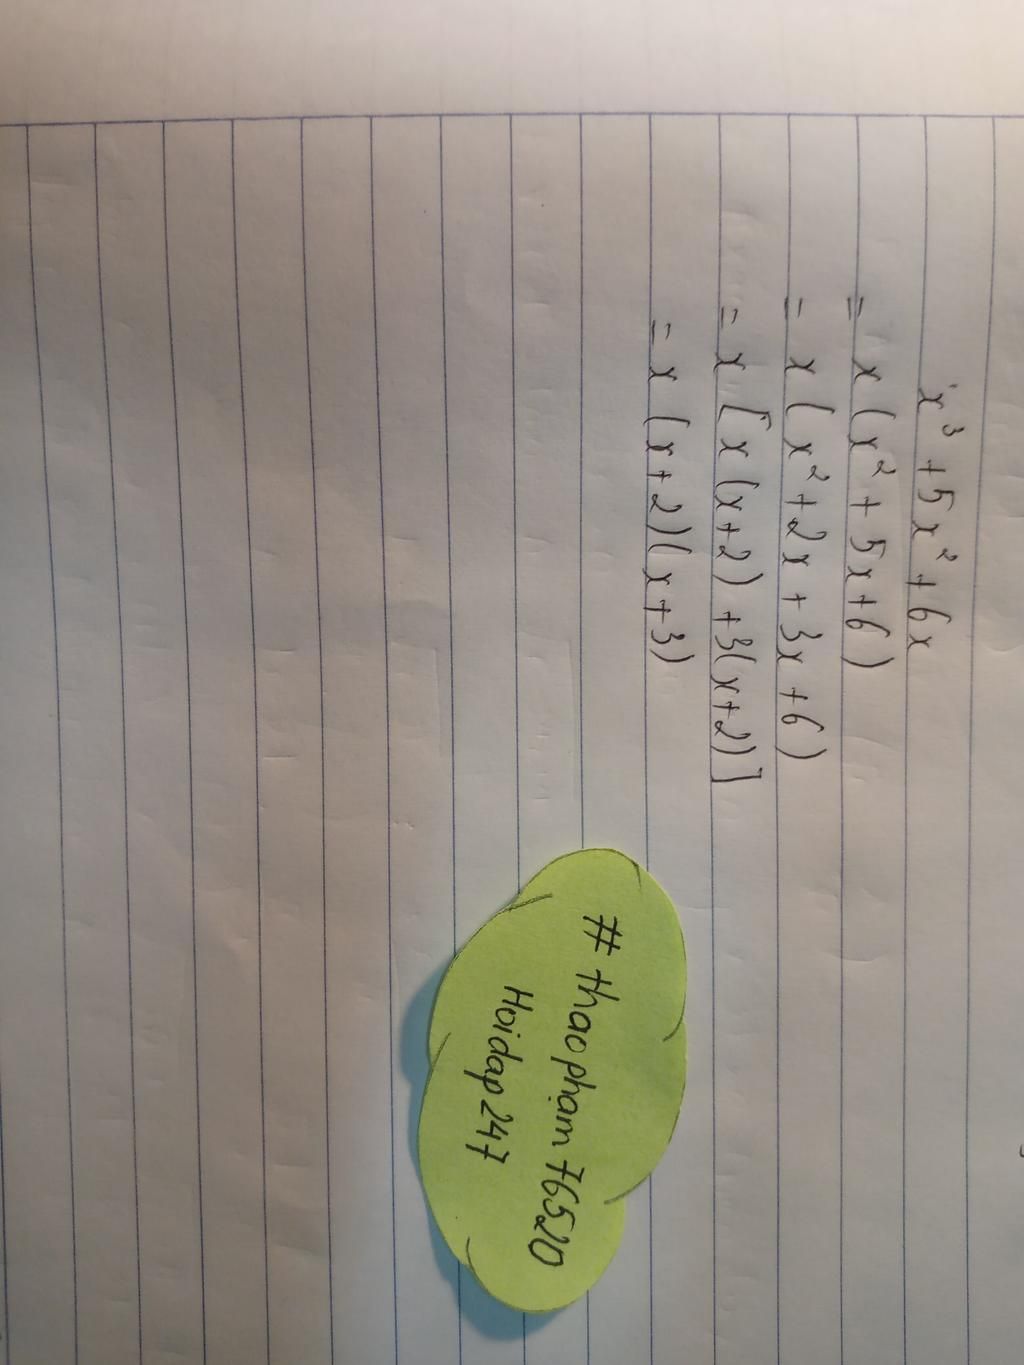 x³ + 5x² + 6x
= x (x² + 5x + 6)
= x (x² + 2x + 3x + 6)
= x [x (x+2) + 3(x+2)]
= x (x+2)(x+3)
# thaophạm 76520
Hoidap 247